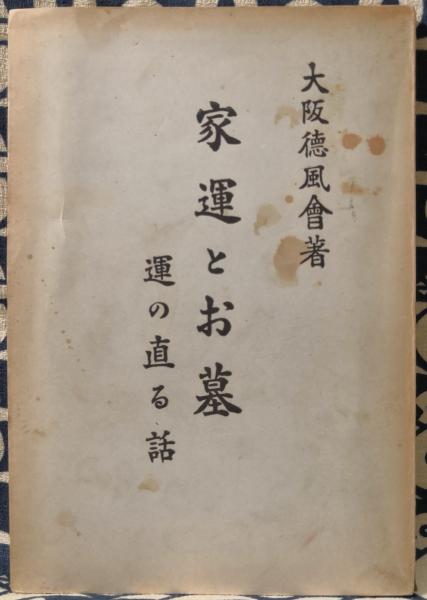 大阪德風會著
家運とお墓
運の直る話